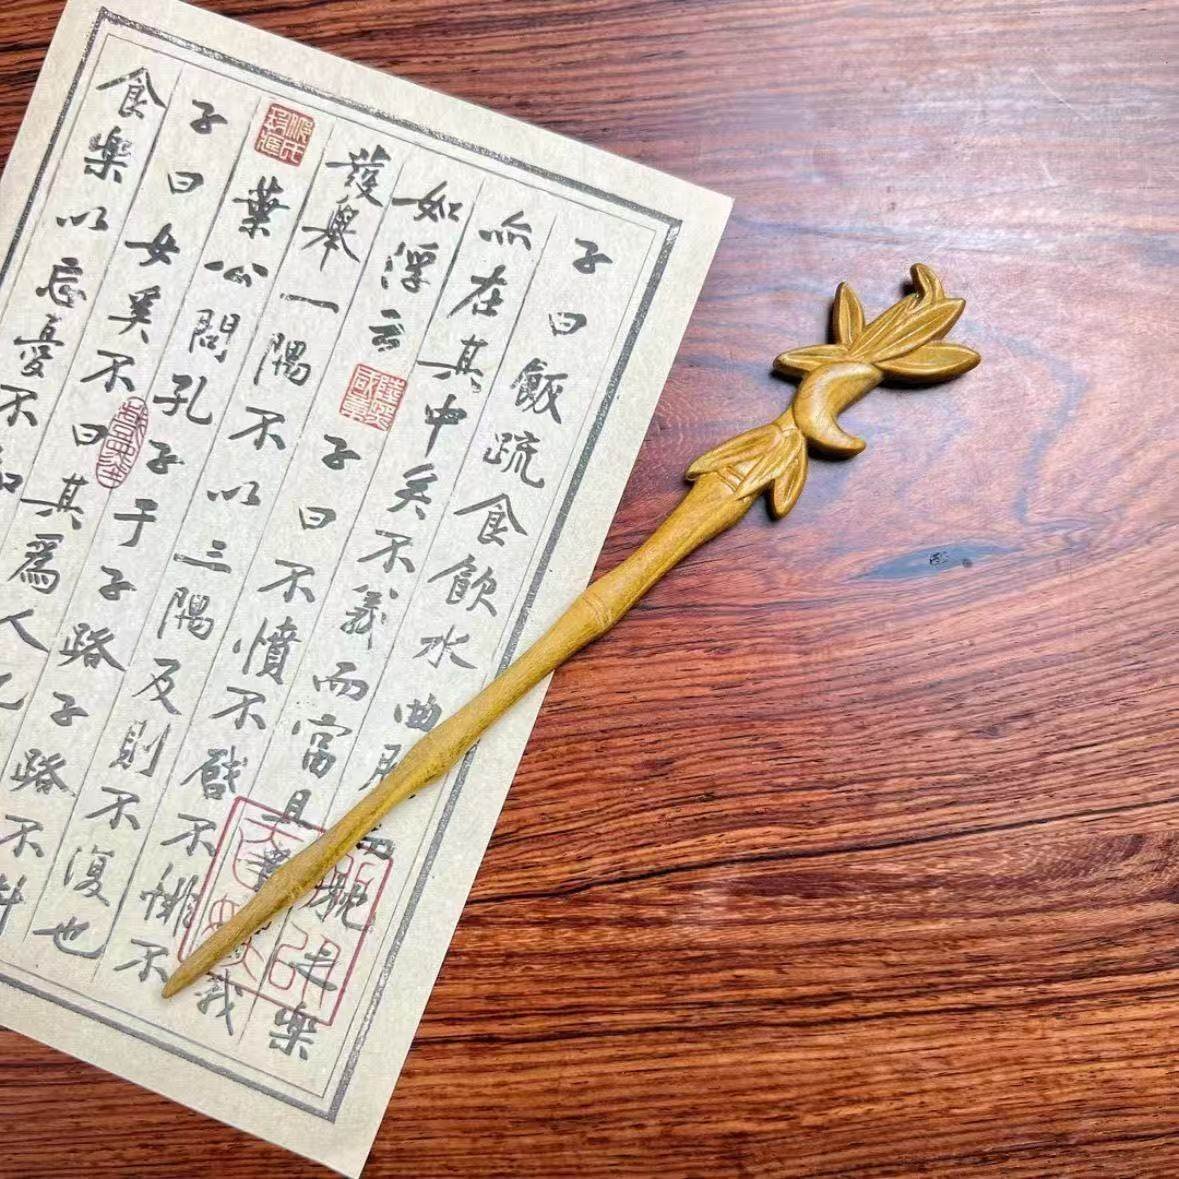 子曰飯疏食飲水曲枕之樂
亦在其中矣不義而富且貴我
如浮云 子曰不憤不啟不悱不
發舉一隅不以三隅反則不復也
葉公問孔子于子路子路不對
子曰女奚不曰其爲人也
食樂以忘憂不知